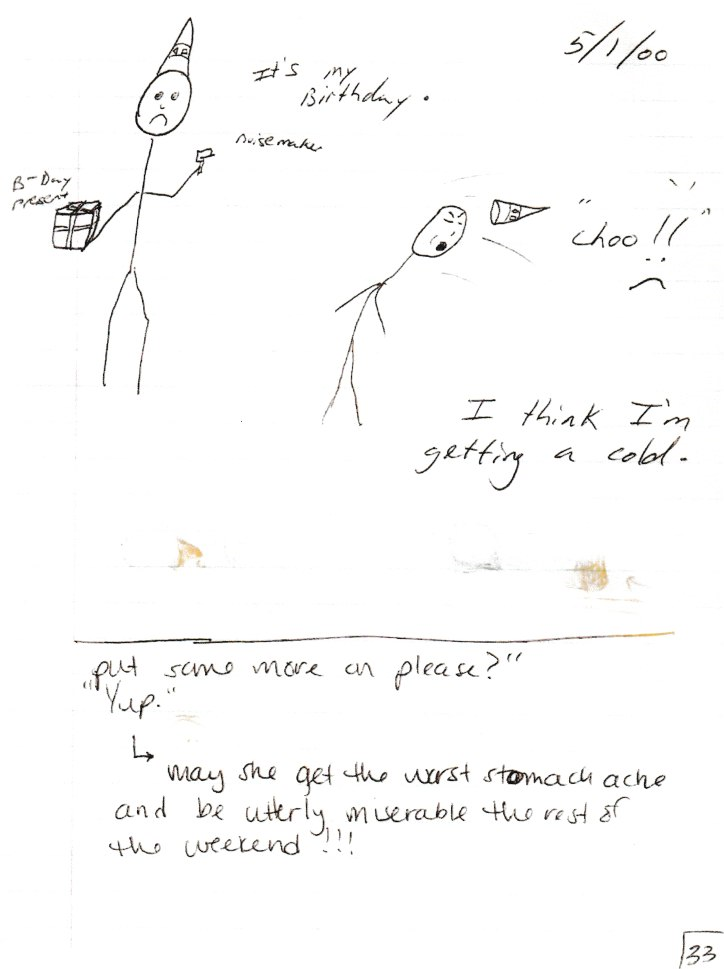 5/1/00
It's my
Birthday.
noisemaker
B-Day
present
"choo!!"
I think I'm
getting a cold.
"put some more on please?"
"Yup."
↳ may she get the worst stomach ache
and be utterly miserable the rest of
the weekend!!!
33